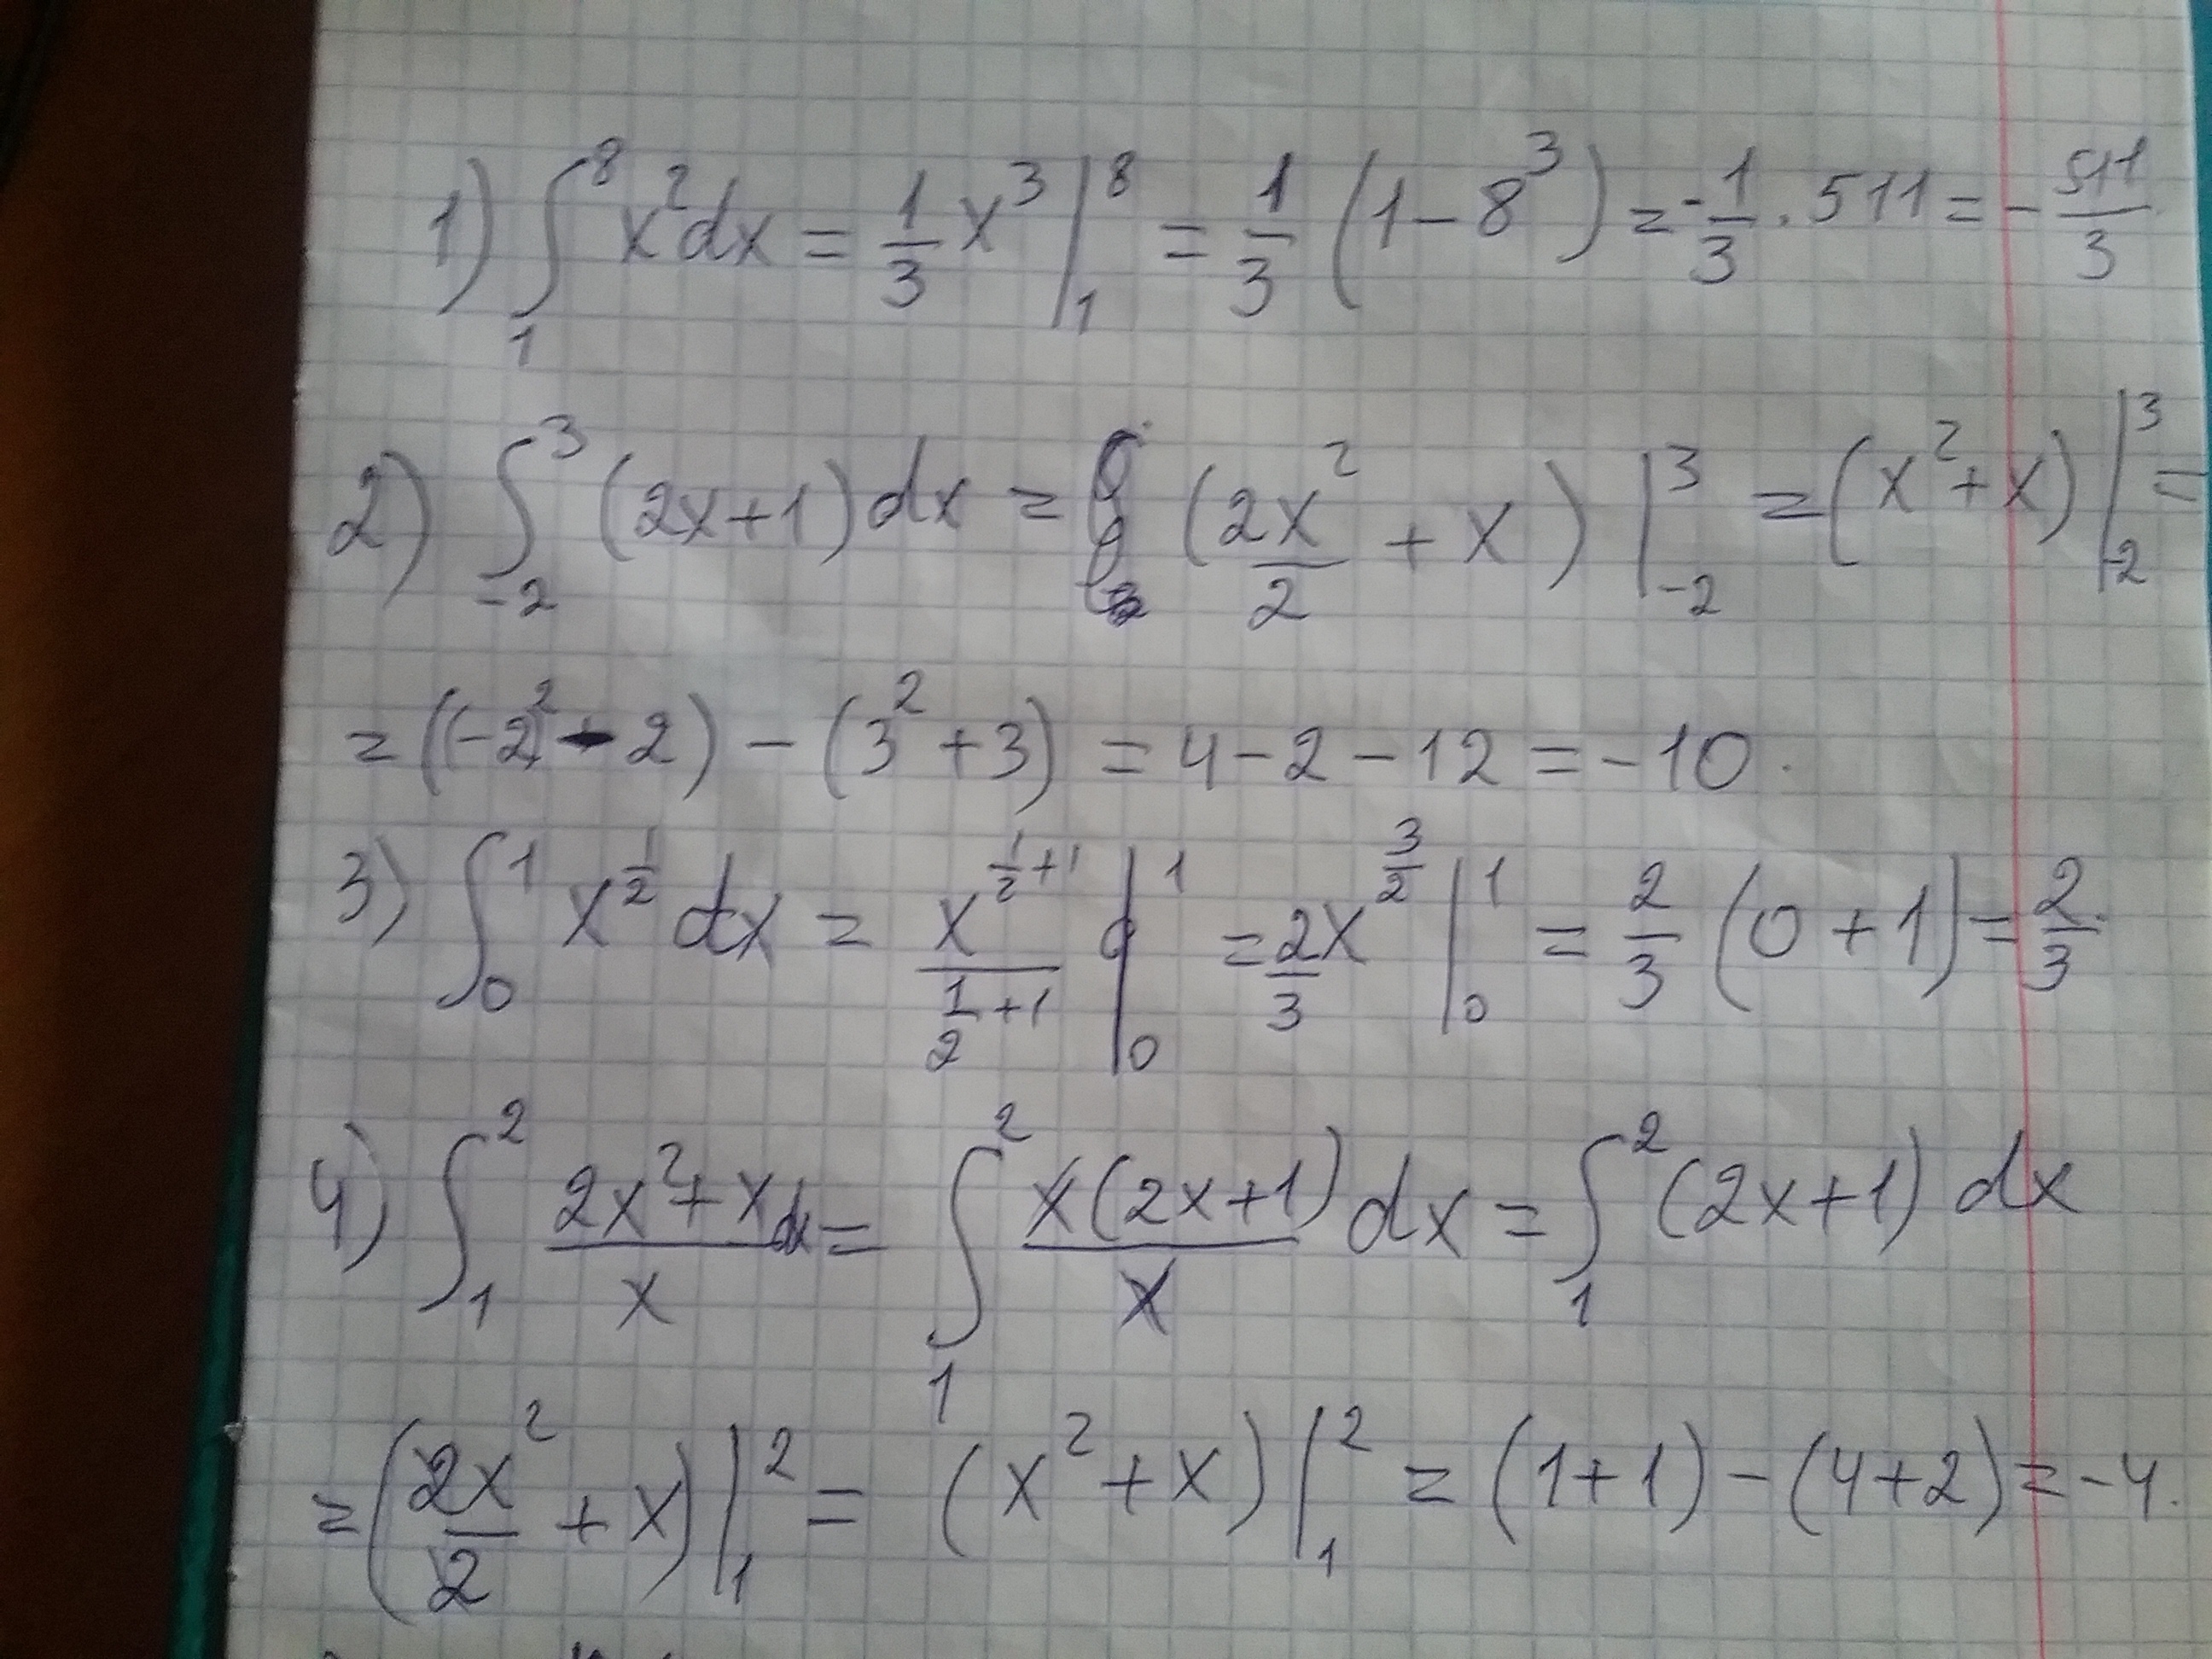 1) ∫₁⁸ x²dx = 1/3 x³ |₁⁸ = 1/3 (1 − 8³) = -1/3 · 511 = − 511/3.
2) ∫₋₂³ (2x+1) dx = (2x²/2 + x) |₋₂³ = (x² + x) |₋₂³ =
= ((−2)² - 2) − (3² + 3) = 4 − 2 − 12 = −10.
3) ∫₀¹ x^(1/2) dx = x^(1/2+1)/(1/2+1) |₀¹ = 2/3 x^(3/2) |₀¹ = 2/3 (0 + 1) = 2/3.
4) ∫₁² (2x² + x)/x dx = ∫₁² x(2x+1)/x dx = ∫₁² (2x+1) dx
= (2x²/2 + x) |₁² = (x² + x) |₁² = (1+1) − (4+2) = −4.